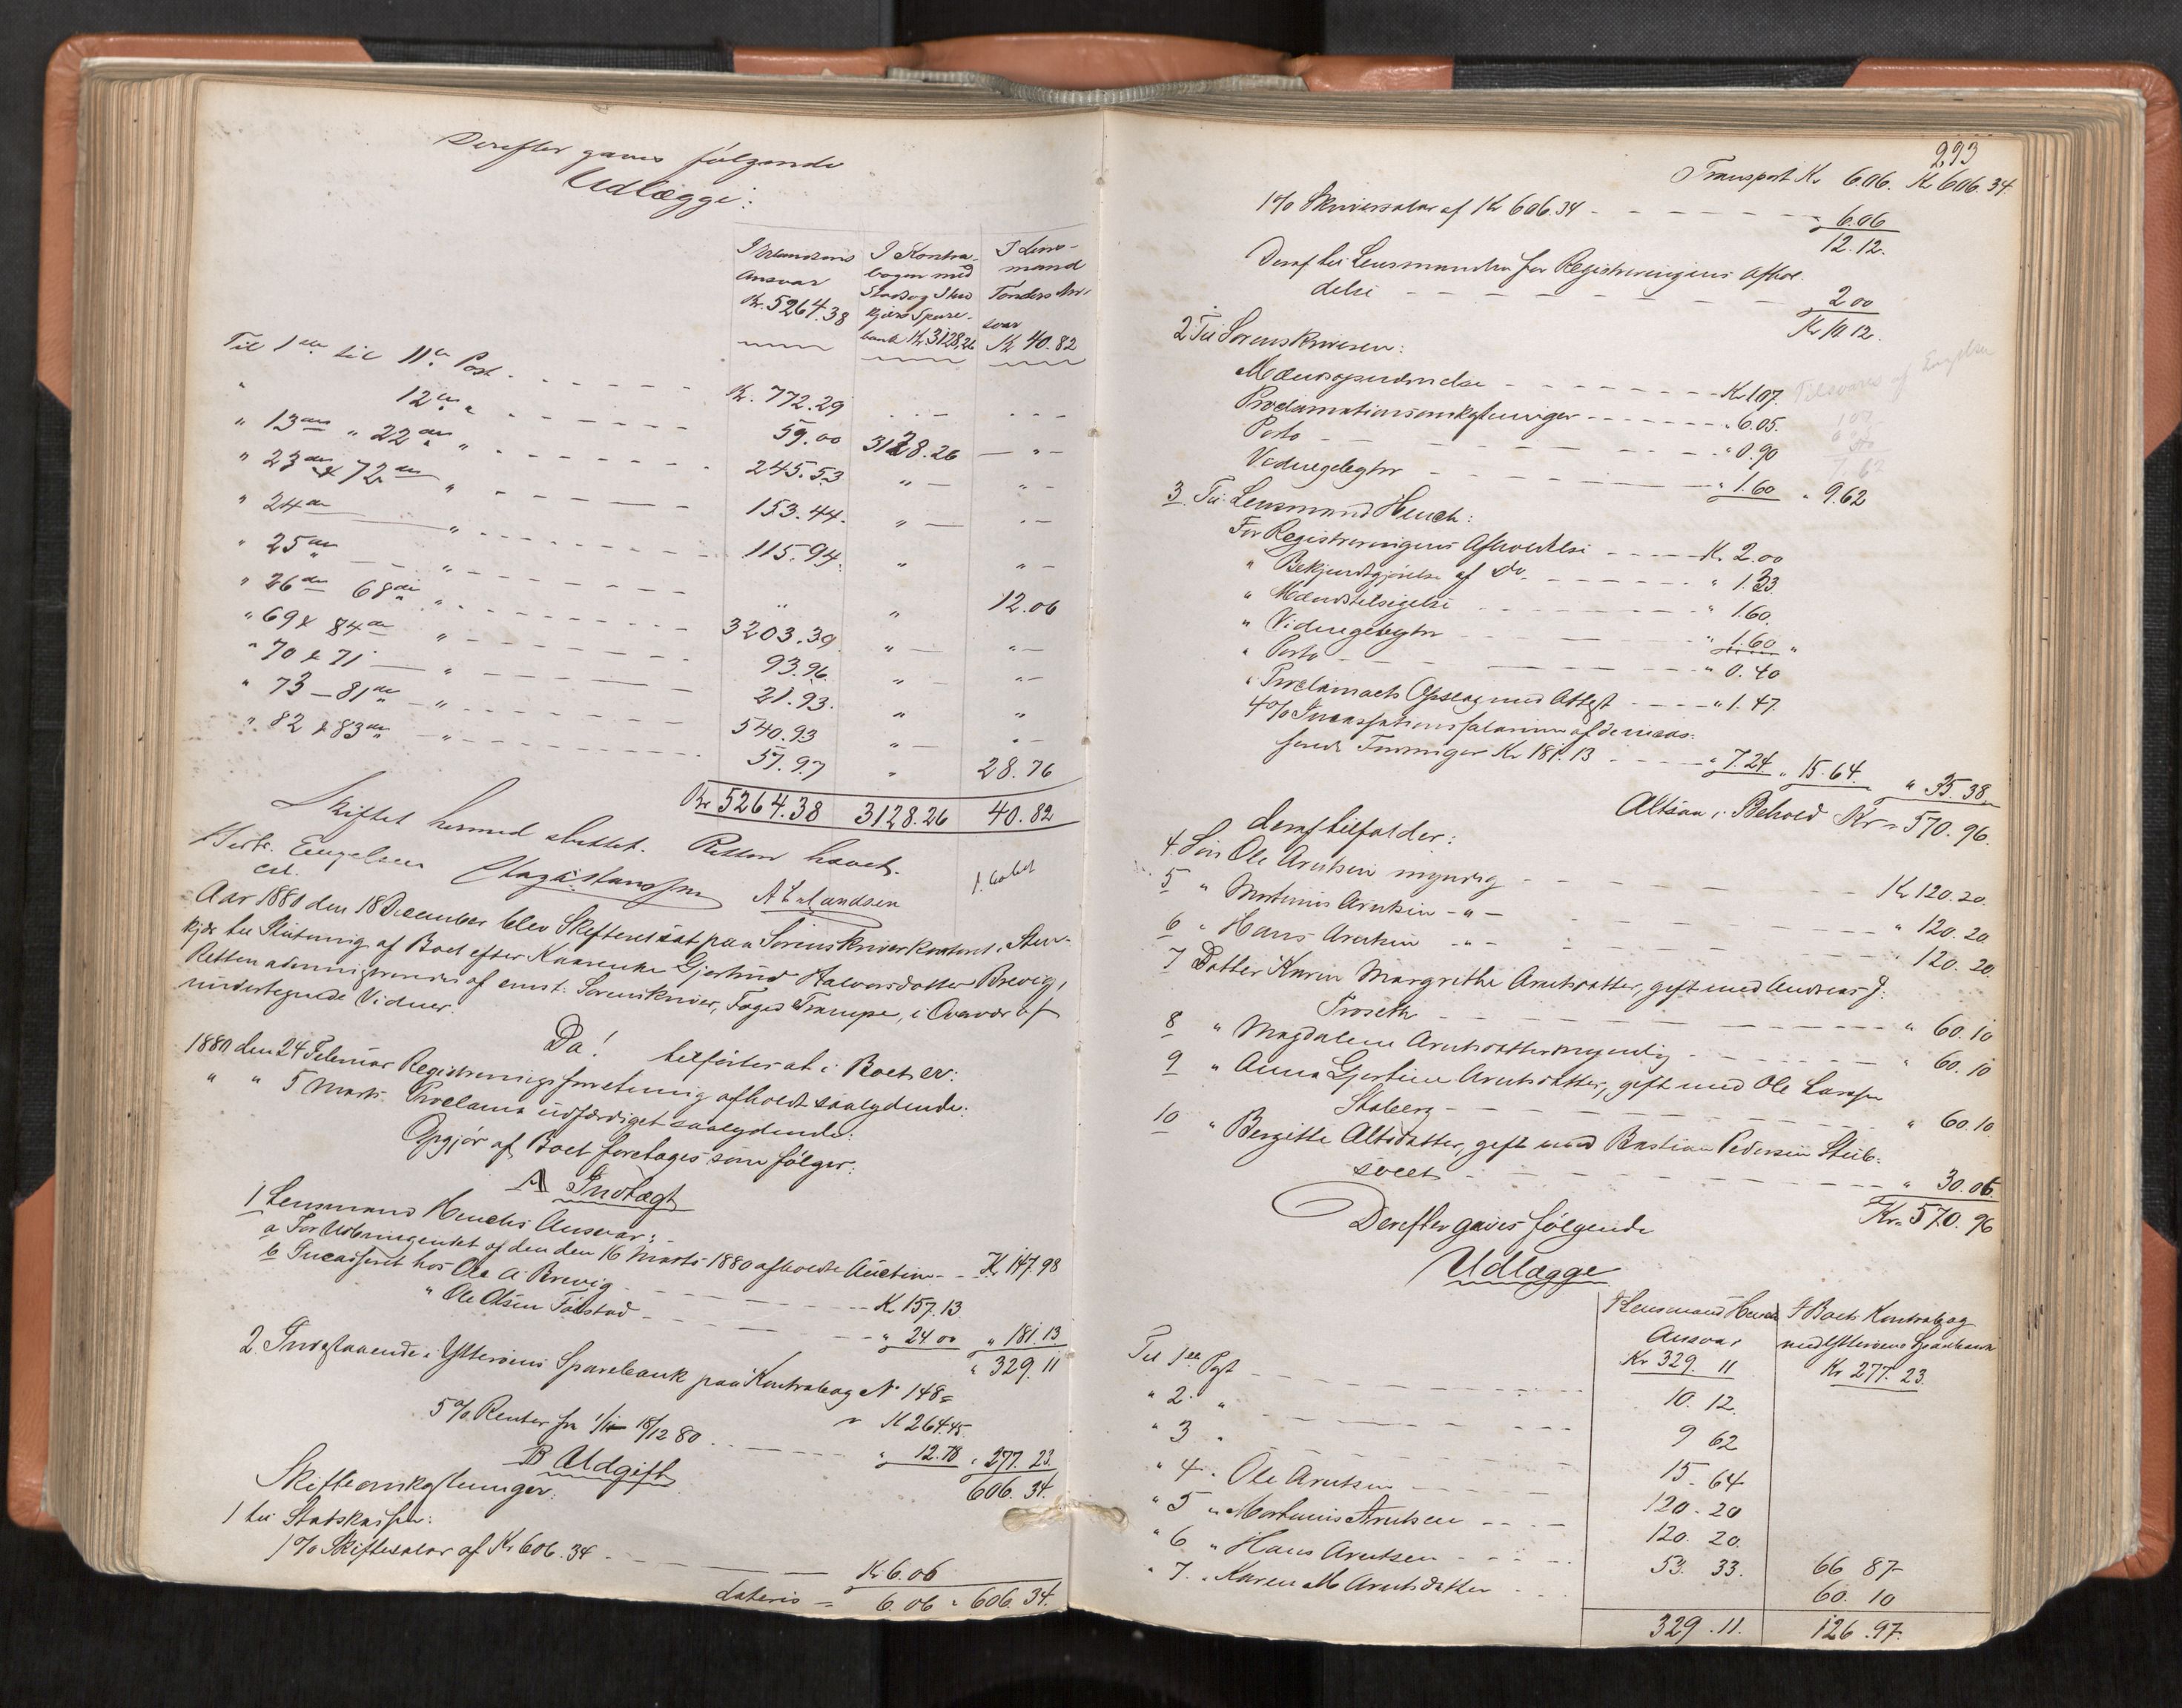 Derefter gaves følgende
Udlægge:
I Erlandsens Ansvar Kr. 5264.38
I Kontrabogen med Stod og Stenkjær Sparebank Kr 3128.26
I Lensmand Tonders Ansvar Kr 40.82
Til 1ste til 11te Post - - - Kr. 772.29 - - - - - -
" 12te " - - - 59.00 3128.26 — " —
" 13de " 22de " - - - 245.53 " — " —
" 23de & 72de " - - - 153.44. " — " —
" 24de — " - - - 115.94. " " —
" 25de — " - - - " " 12.06
" 26de 68de " - - - 3203.39 " — " —
" 69 & 84de " - - - 93.96. " — " —
" 70 & 71 — " - - - 21.93. " "
" 73 — 81de — " - - - 540.93 " — " —
" 82 & 83de — " - - - 57.97 " 28.76
Kr 5264.38 3128.26 40.82
Skiftet hermed sluttet. Retten hævet.
Engelsen A Erlandsen
cst.
Aar 1880 den 18 December blev Skifteret sat paa Sorenskriverkontoret, Sten-
kjær til Slutning af Boet efter Gjertrud Halvorsdatter Brevig,
Retten administreredes af const. Sorenskriver, Foged Trampe, i Overvær af
undertegnede Vidner.
Da! tilførtes at i Boet er:
1880 den 24 Februar Registreringsforretning afholdt saalydende:
" " 5 Marts Proclama udfærdiget saalydende:
Opgjør af Boet foretages som følger:
A Indtægt
1 Lensmand Henchs Ansvar:
a For Udbringendet af den den 16 Marts 1880 afholdte Auction - - Kr 147.98
b Incasseret hos Ole A Brevig - - - Kr 157.13
" Ole Olsen Følstad - - - " 24 00 " 181.13
" 329.11
2. Indestaaende i Ytterøens Sparebank paa Kontrabog No 148 =
" Kr 264.45.
5 % Renter fra 1/1 - 18/12 80 - - - " 12.78 " 277.23.
606.34.
B Udgift
Skifteomkostninger:
1 til Statskassen:
1 % Skiftesalar af Kr 606.34 - - - Kr 6.06
Lateris = 6.06 " 606.34.
293
Transport Kr 6.06. Kr 606.34
1 % Skriversalar af Kr 606.34 - - - 6.06
12.12.
Deraf til Lensmanden for Registreringens Afhol-
delse - - - 2 00
Kr 10 12.
2 Til Sorenskriveren:
Mændsopnævnelse - - - Kr 1.07.
Proclamationsomkostninger - - - " 6.05.
Porto - - - " 0.90
Vidnegebyhr - - - " 1.60 " 9.62
3. Til Lensmand Hench:
For Registreringens Afholdelse - - - Kr. 2.00
" Bekjendtgjørelse af Do. - - - " 1.33.
" Mændstilsigelse - - - " 1.60.
" Vidnegebyhr - - - " 1.60 "
" Porto - - - " 0.40
" Proclamaets Opslag med Attest - - - " 1.47.
4 % Incassationssalarium af de incas-
serede Fordringer Kr 181.13 - - - " 7.24 " 15.64. " 35.38.
Altsaa i Behold Kr = 570.96.
deraf tilfalder:
4. Søn Ole Arntsen myndig - - - Kr 120.20.
5 " Martinus Arntsen - " - - - - " 120.20.
6 " Hans Arntsen - " - - - - 120.20.
7 Datter Karen Margrethe Arntsdatter, gift med Andreas J.
Troseth - - - " 60.10
8 " Magdalene Arntsdatter myndig - - - " 60.10
9 " Anna Gjertine Arntsdatter, gift med Ole Larsen
Staberg - - - " 60.10.
10 " Bergitte Altsdatter, gift med Bastian Pedersen Stub-
svelt - - - " 30.06
Kr = 570.96
Derefter gaves følgende
Udlægge
I Lensmand Henchs Ansvar Kr 329.11
I Boets Kontrabog med Ytterøens Sparebank Kr 277.23.
Til 1ste Post - - - 10.12.
" 2 " - - - 9 62
" 3 " - - - 15.64
" 4 " Ole Arntsen - - - 120.20
" 5 " Martinus Arntsen - - - 120.20.
" 6 " Hans Arntsen - - - 53.33. 66 87
" 7 " Karen M Arntsdatter - - - 60.10
329.11. 126.97.